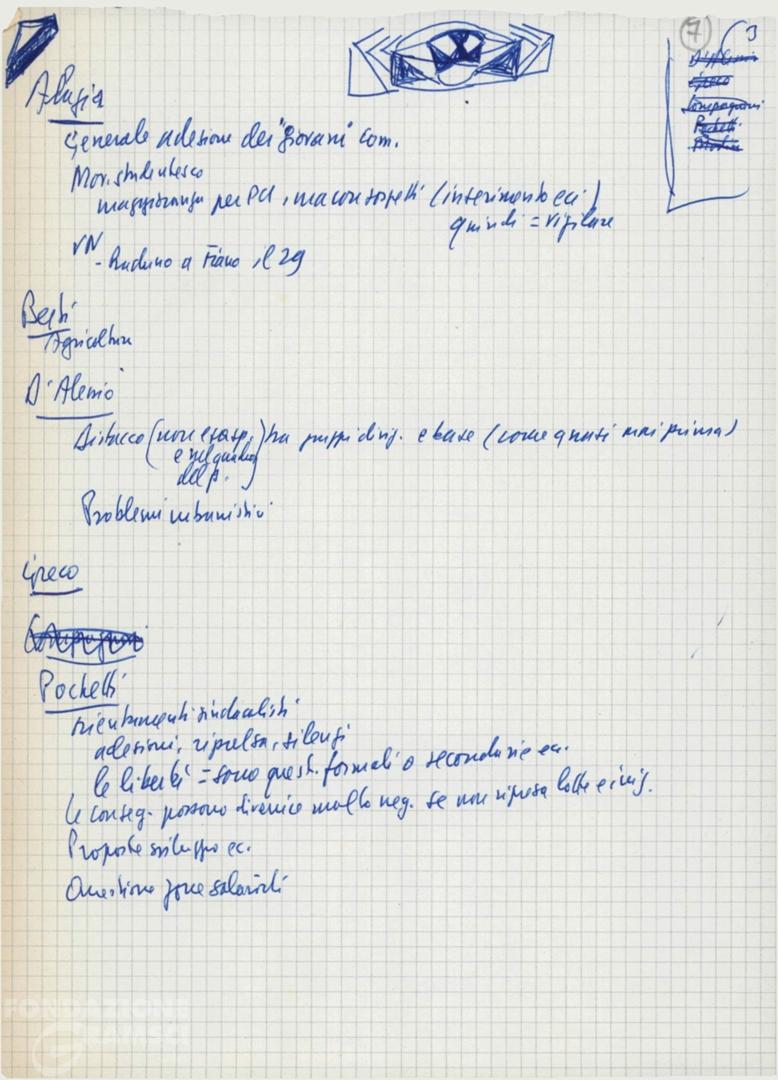 7
3
D'Alemio
Greco
Compagnoni
Pochetti
Alagia
Generale adesione dei "giovani" com.
Mov. studentesco
maggioranza per PCI, ma con sospetti (inserimento ecc.)
quindi = vigilare
VN
- Raduno a Fiano il 29
Berti
Agricoltura
D'Alemio
Distacco (non esasp. e nel quadro del p.) tra gruppi dirig. e base (come quasi mai prima)
Problemi urbanistici
Greco
Compagnoni
Pochetti
orientamenti sindacalisti
adesioni, ripulsa, silenzi
le libertà = sono quest. formali o secondarie ecc.
Le conseg. possono divenire molto neg. se non ripresa lotte e
Proposte sviluppo ec.
Questione zone salariali
FONDAZIONE
GRAMSCI